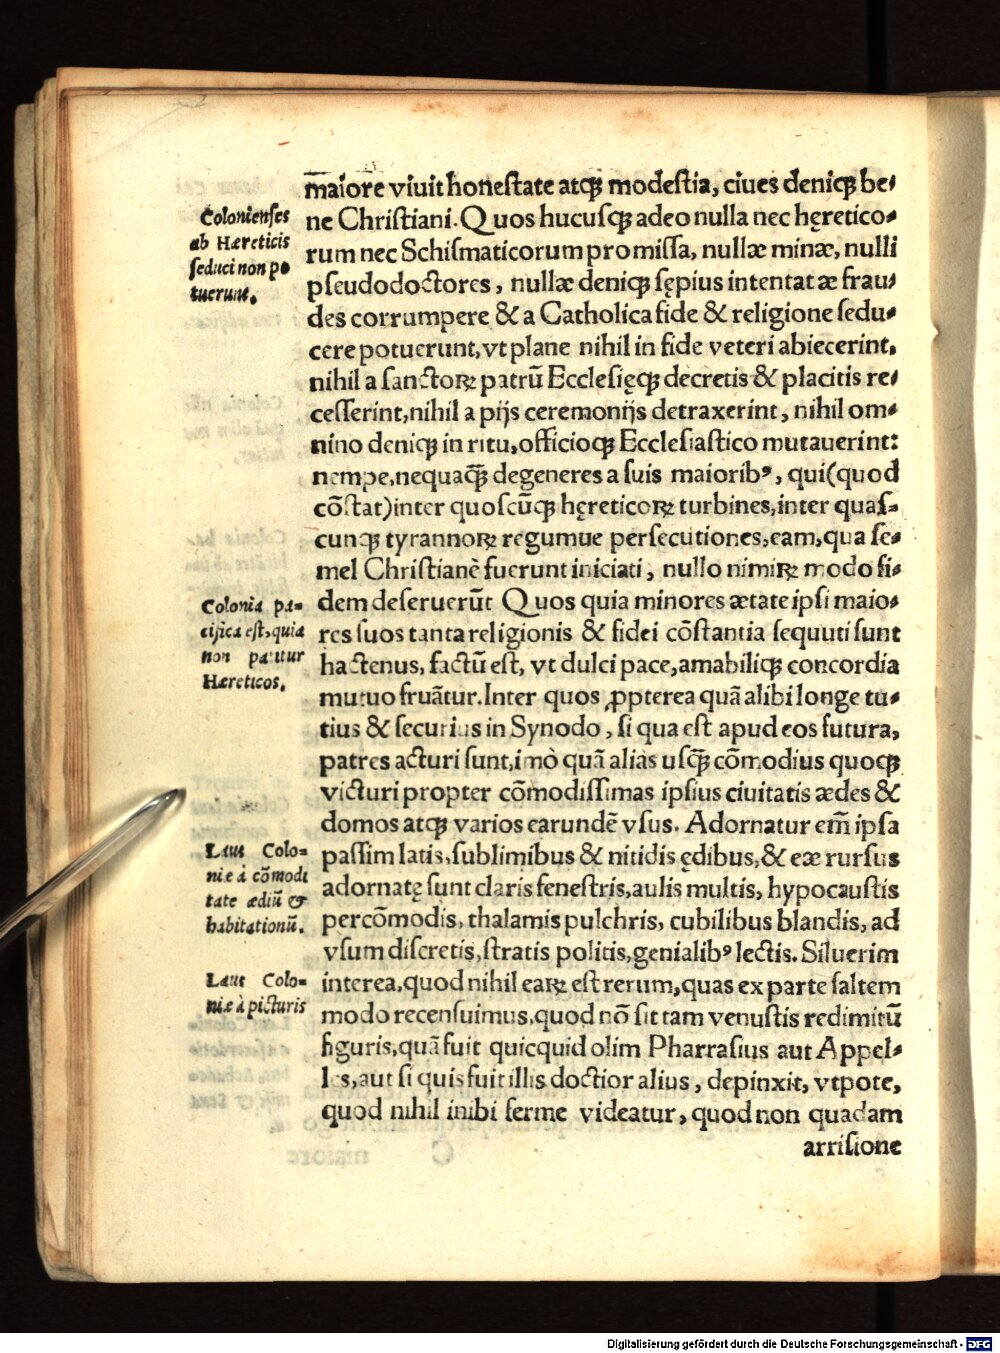 maiore viuit honestate atqꝫ modestia, ciues deniqꝫ be⸗
ne Christiani. Quos hucusqꝫ adeo nulla nec hęretico⸗
rum nec Schismaticorum promissa, nullæ minæ, nulli
pseudodoctores, nullæ deniqꝫ sępius intentatæ frau⸗
des corrumpere & a Catholica fide & religione sedu⸗
cere potuerunt, vt plane nihil in fide veteri abiecerint,
nihil a sanctoꝝ patrū Ecclesięqꝫ decretis & placitis re⸗
cesserint, nihil a pijs ceremonijs detraxerint, nihil om⸗
nino deniqꝫ in ritu, officioqꝫ Ecclesiastico mutauerint:
nempe, nequaqꝫ̄ degeneres a suis maioribꝰ, qui (quod
cōstat) inter quoscūqꝫ hęreticoꝝ turbines, inter quas⸗
cunqꝫ tyrannoꝝ regumue persecutiones, eam, qua se⸗
mel Christianè fuerunt iniciati, nullo nimiꝝ modo fi⸗
dem deseruerūt Quos quia minores ætate ipsi maio⸗
res suos tanta religionis & fidei cōstantia sequuti sunt
hactenus, factū est, vt dulci pace, amabiliqꝫ concordia
mutuo fruātur. Inter quos ꝓpterea quā alibi longe tu⸗
tius & securius in Synodo, si qua est apud eos futura,
patres acturi sunt, imò quā aliàs usqꝫ̄ cōmodius quoqꝫ
victuri propter cōmodissimas ipsius ciuitatis ædes &
domos atqꝫ varios earundē vsus. Adornatur em̄ ipsa
passim latis, sublimibus & nitidis ędibus, & eæ rursus
adornatę sunt claris fenestris, aulis multis, hypocaustis
percōmodis, thalamis pulchris, cubilibus blandis, ad
vsum discretis, stratis politis, genialibꝰ lectis. Siluerim
interea, quod nihil eaꝝ est rerum, quas ex parte saltem
modo recensuimus, quod nō sit tam venustis redimitū
figuris, quā fuit quicquid olim Pharrasius aut Appel⸗
les, aut si quis fuit illis doctior alius, depinxit, vtpote,
quod nihil inibi ferme videatur, quod non quadam
arrisione
Colonienses
ab Hæreticis
seduci non po
tuerunt.
Colonia pa⸗
cifica est, quia
non patitur
Hæreticos.
Laus Colo⸗
niæ à cōmodi
tate ædiū &
habitationū.
Laus Colo⸗
niæ à picturis
Digitalisierung gefördert durch die Deutsche Forschungsgemeinschaft - DFG